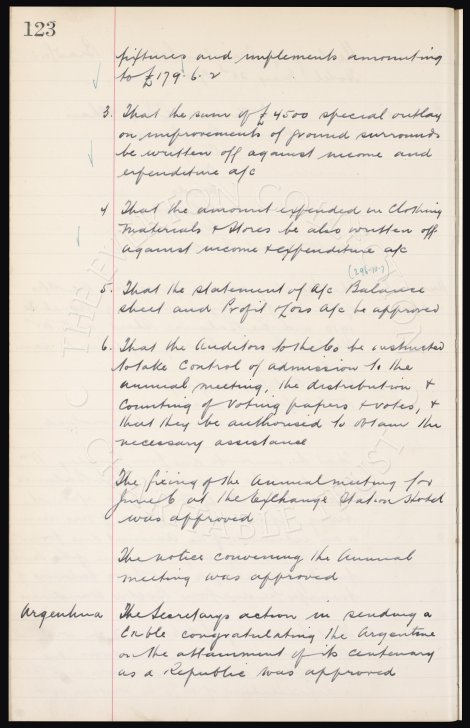 123
fixtures and implements amounting
to £179.6.2
3. That the sum of £4500 special outlay
on improvements of ground surrounds
be written off against income and
expenditure a/c
4 That the amount expended in Clothing
Materials & Stores be also written off
against income & expenditure a/c
5. That the statement of A/c Balance
sheet and Profit & Loss A/c be approved
6. That the Auditors to the Co be instructed
to take control of admission to the
annual meeting, the distribution &
counting of voting papers & votes, &
that they be authorised to obtain the
necessary assistance
The fixing of the annual meeting for
June 6 at the Exchange Station Hotel
was approved
The notice convening the Annual
meeting was approved
Argentina The Secretarys action in sending a
Cable congratulating the Argentine
on the attainment of its centenary
as a Republic was approved